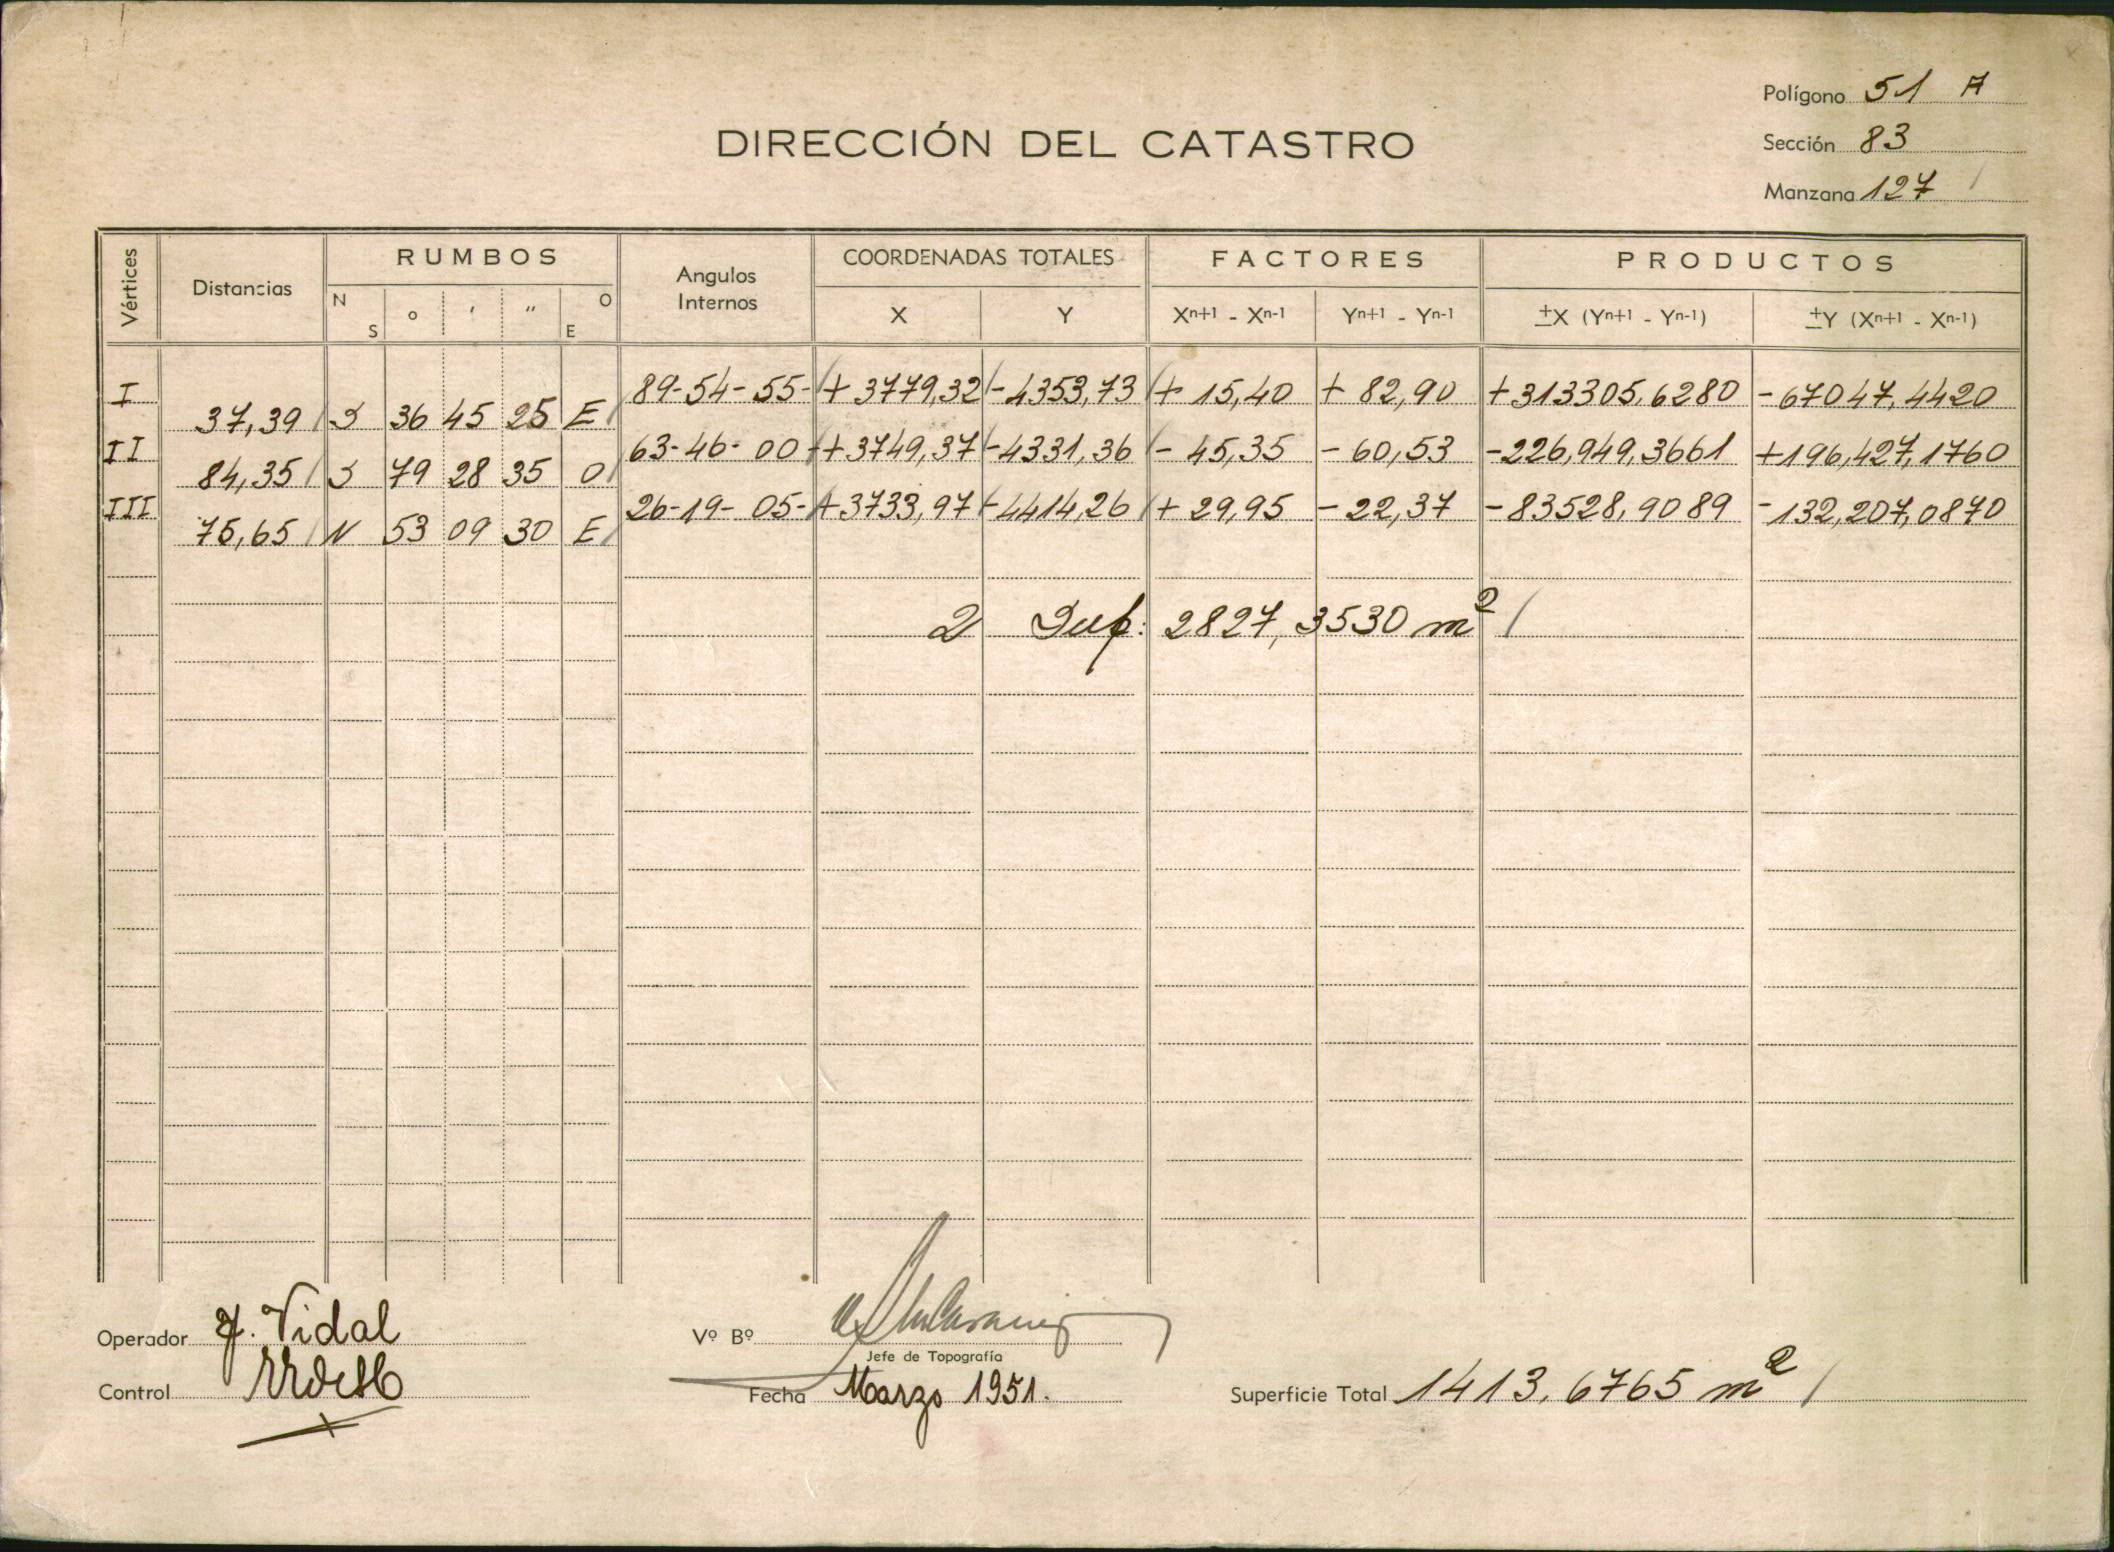 Polígono 51 A
DIRECCIÓN DEL CATASTRO
Sección 83
Manzana 127
Vértices Distancias RUMBOS Angulos Internos COORDENADAS TOTALES FACTORES PRODUCTOS
N S ° ' " O E X Y Xn+1 - Xn-1 Yn+1 - Yn-1 ±X (Yn+1 - Yn-1) ±Y (Xn+1 - Xn-1)
I 89-54-55- + 3779,32 -4353,73 + 15,40 + 82,90 +313305,6280 -67047,4420
37,39 S 36 45 25 E
II 63-46-00- +3749,37 -4331,36 - 45,35 - 60,53 -226,949,3661 +196,427,1760
84,35 S 79 28 35 O
III 26-19-05- +3733,97 -4414,26 + 29,95 - 22,37 -83528,9089 -132,207,0870
75,65 N 53 09 30 E
2 Sup: 2827,3530 m²
Operador J. Vidal
Vº Bº
Jefe de Topografía
Control
Fecha Marzo 1951.
Superficie Total 1413,6765 m²